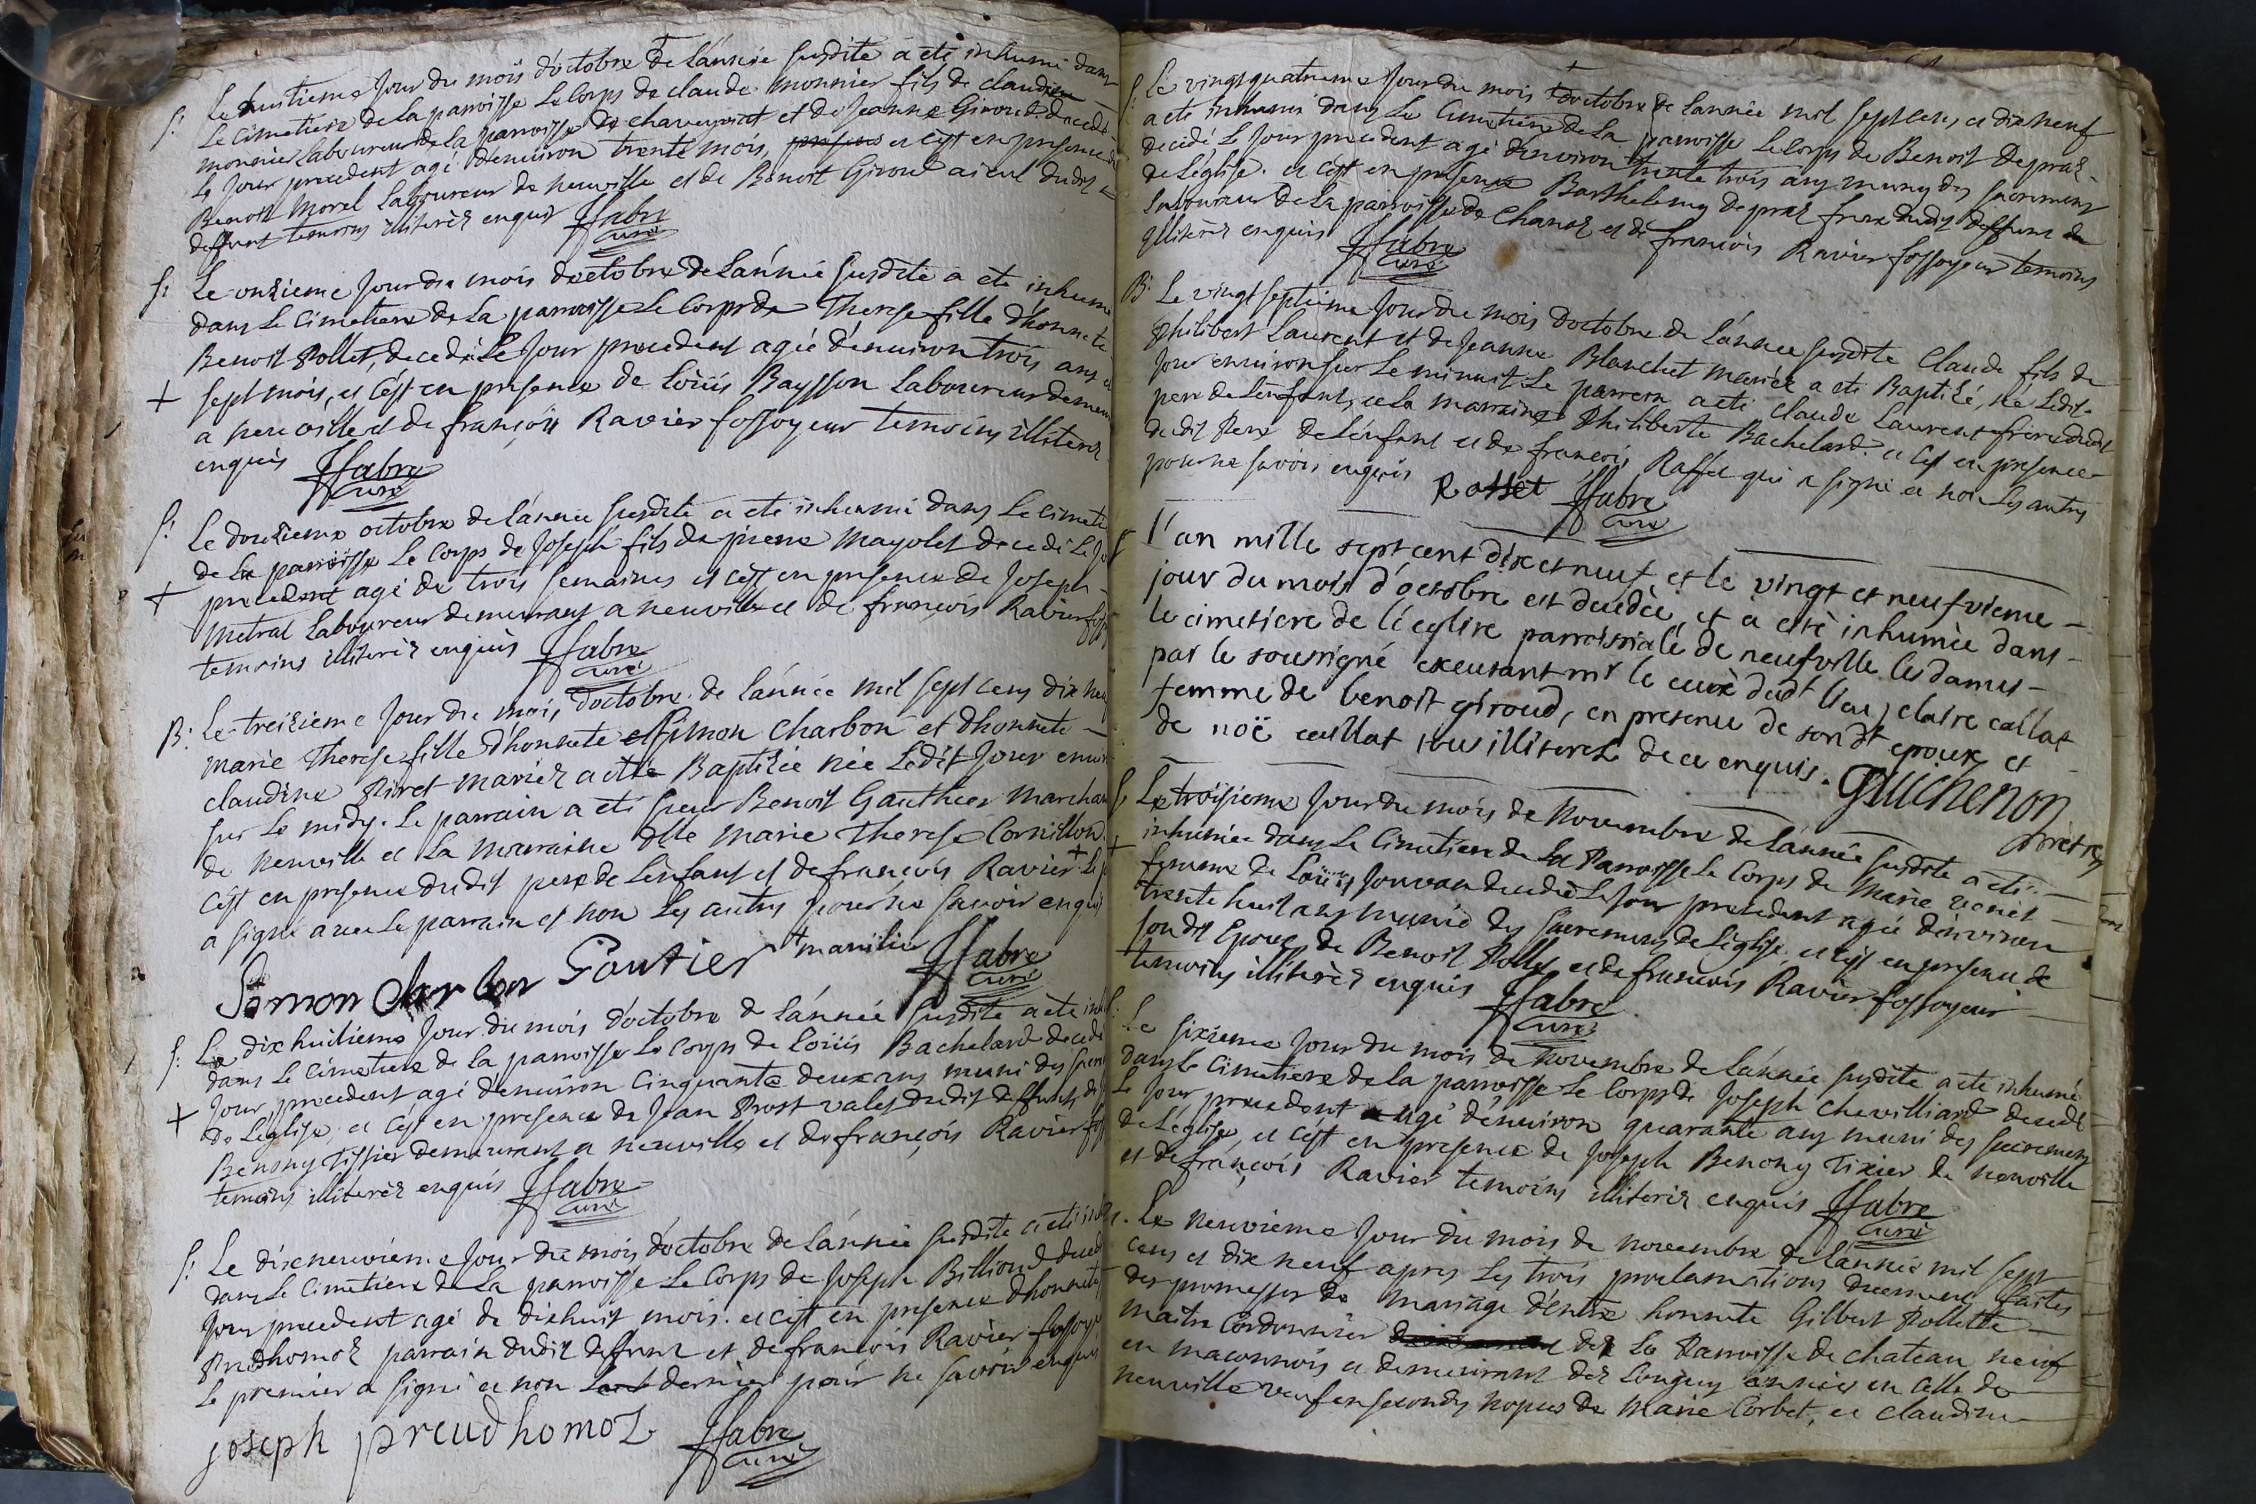 S: Le huitieme Jour du mois d'octobre de lánnée susdite a eté inhumé dans
Le Cimetiere de la parroisse Le Corps de claude monnier fils de claudine
monnier Laboureur de la parroisse de chaveyriat et de Jeanne Giroud decedé
Le Jour precedent agé dénviron trente mois, et cést en presence de
Benoit Morel Laboureur de neuville et de Benoit Giroud aieul dudit
deffunt temoins illiterés enquis JJabre
curé
S: Le onzieme Jour du mois doctobre de Lánnée susdite a eté inhumé
dans Le Cimetiere de La parroisse Le Corps de Therese fille dhonnete
Benoit Pollet, decedée Le Jour precedent agée dénviron trois ans et
+ sept mois, et cést en presence de Loüis Baysson Laboureur demeu
a neuville et de françois Ravier fossoyeur temoins illiterez
enquis JJabre
curé
S: Le douzieme octobre de lánnée susdite a eté inhumé dans Le Cimeti
de La parroisse Le Corps de Joseph fils de pierre Mayolet decedé Le Jo
+ precedent agé de trois semaines et cést en presence de Joseph
metral Laboureur demeurant a neuville et de françois Ravier foss
temoins illiteréz enquis JJabre
curé
B: Le treizieme Jour du mois doctobre de lánnée mil sept cens dix neu
marie Therese fille d'honnete Simon Charbon et dhonnete
claudine Piret mariez a eté Baptizée née Ledit Jour enviro
sur Le midy. Le parrain a eté sieur Benoit Gauthier marchan
de neuville et La marraine dlle marie Therese Cornillon.
Cést en presence dudit pere de Lénfant et de françois Ravier + Le p
a signé avec Le parrain et non Les autres pour ne savoir enquis
Simon Charbon Gautier + manilier JJabre
curé
S: Le dix huitieme Jour du mois d'octobre de lánnée susdite a eté inh
dans Le Cimetiere de la parroisse Le Corps de Loüis Bachelard decedé
Jour precedent agé dénviron Cinquante deux ans muni des sacre
+ de Léglise, et cést en presence de Jean Prost valet dudit deffunt, de J
Benony Tissier demeurant a neuville et de françois Ravier foss
temoins illiteréz enquis JJabre
curé
S: Le dixneuvieme Jour du mois d'octobre de Lánnée susdite a eté inh
dans Le Cimetiere de La parroisse Le Corps de Joseph Billioud deced
Jour precedent agé de dixhuit mois. et cést en presence dhonnete
Prudhomoz parrain dudit deffunt et de françois Ravier fossoye
Le premier a signé et non dernier pour ne savoir enquis
joseph preudhomoz JJabre
curé
S: Le vingt quatrieme Jour du mois doctobre de Lánnée mil sept cens et dix neuf
a eté inhumé dans Le Cimetiere de La parroisse Le Corps de Benoit Depraz
decedé Le Jour precedent agé dénviron trente trois ans muny des sacremens
de Léglise. et cést en presence Barthelemy depraz frere dudit deffunt
Laboureur de La parroisse de Chanoz et de françois Ravier fossoyeur temoins
illiteréz enquis JJabre
curé
B: Le vingt septieme Jour du mois doctobre de Lánnée susdite Claude fils de
Philibert Laurent et de Jeanne Blanchet mariéz a eté Baptizé, né Ledit
Jour environ sur Le minuit. Le parrein a eté Claude Laurent frere dudit
pere de Lénfant, et La marraine Philiberte Bachelard. et cést en presence
dudit Pere de Lénfant et de françois Raffet qui a signé et non Les autres
pour ne savoir enquis Raffet JJabre
curé
L'an mille sept cent dix et neuf, et le vingt et neufvieme
jour du mois d'octobre est decedée, et a eté inhumée dans
le cimetiere de l'eglise parroissiale de neufville les dames
par le soussigné exeusant mr le curé dudt lieu, claire callat
femme de benoit giroud, en presence de son dt epoux et
de noë callat tous illiterez de ce enquis. Guichenon
prêtre
S. Le troisieme Jour du mois de novembre de lánnée susdite a eté
+ inhumée dans Le Cimetiere de La Parroisse Le Corps de Marie
femme de Loüis Jouvan decedée Le Jour precedent agée dénviron
trente huit ans munie des Sacremens de Léglise, et cést en presence de
son dit Epoux, de Benoit Pollet et de francois Ravier fossoyeur
temoins illiteréz enquis JJabre
curé
S: Le sixieme Jour du mois de novembre de Lánnée susdite a eté inhumé
dans Le Cimetiere de la parroisse Le Corps de Joseph Chevilliard decedé
Le Jour precedent agé dénviron quarante ans muni des sacremens
de Léglise, et cést en presence de Joseph Benony Tixier de neuville
et de françois Ravier temoins illiteréz enquis JJabre
curé
Le neuvieme Jour du mois de novembre de Lánnée mil sept
cens et dix neuf apres Les trois proclamations duement faites
des promesses de mariage d'entre honnete Gilbert Pollette
maitre Cordonnier de La Parroisse de chateau neuf
en maconnois et demeurant dez Longues années en celle de
neuville veuf en secondes nopces de Marie Corbet, et claudine